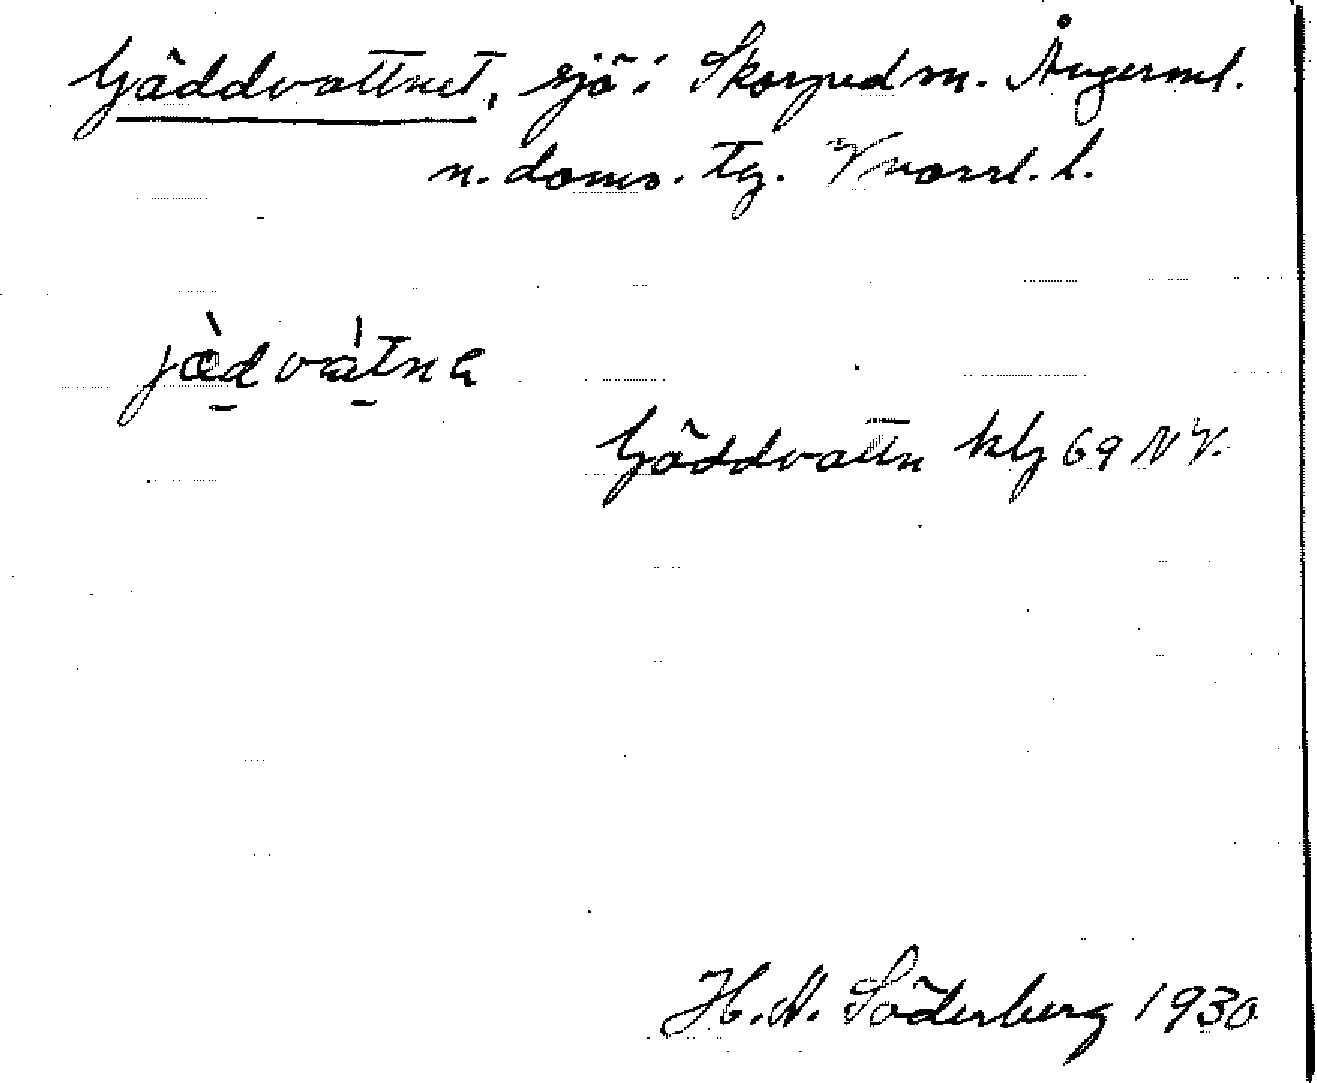 Gäddvattnet, sjö i Skorped sn. Ångerml.
n. doms. tg. Vnorrl. l.
jæ̀dvàtnɐ
Gäddvattn klg 69 NV.
H. A. Söderberg 1930